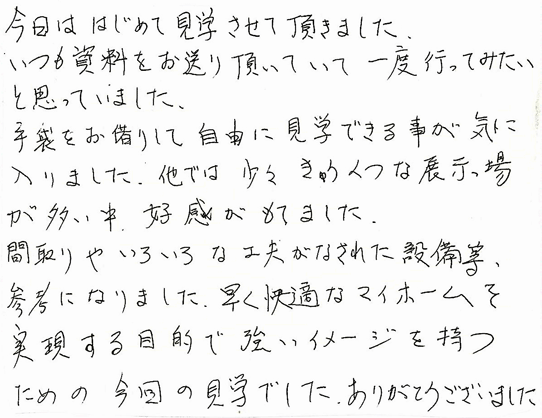 今日は はじめて 見学 させて 頂きました.
いつも資料をお送り頂いていて 一度行ってみたい
と思っていました.
手袋をお借りして 自由に 見学できる事が 気に
入りました. 他では 少々 きゅうくつな展示場
が多い中 好感がもてました.
間取りや いろいろな工夫がなされた設備等、
参考になりました. 早く快適なマイホームを
実現する目的で 強いイメージを持つ
ための 今回の見学でした. ありがとうございました